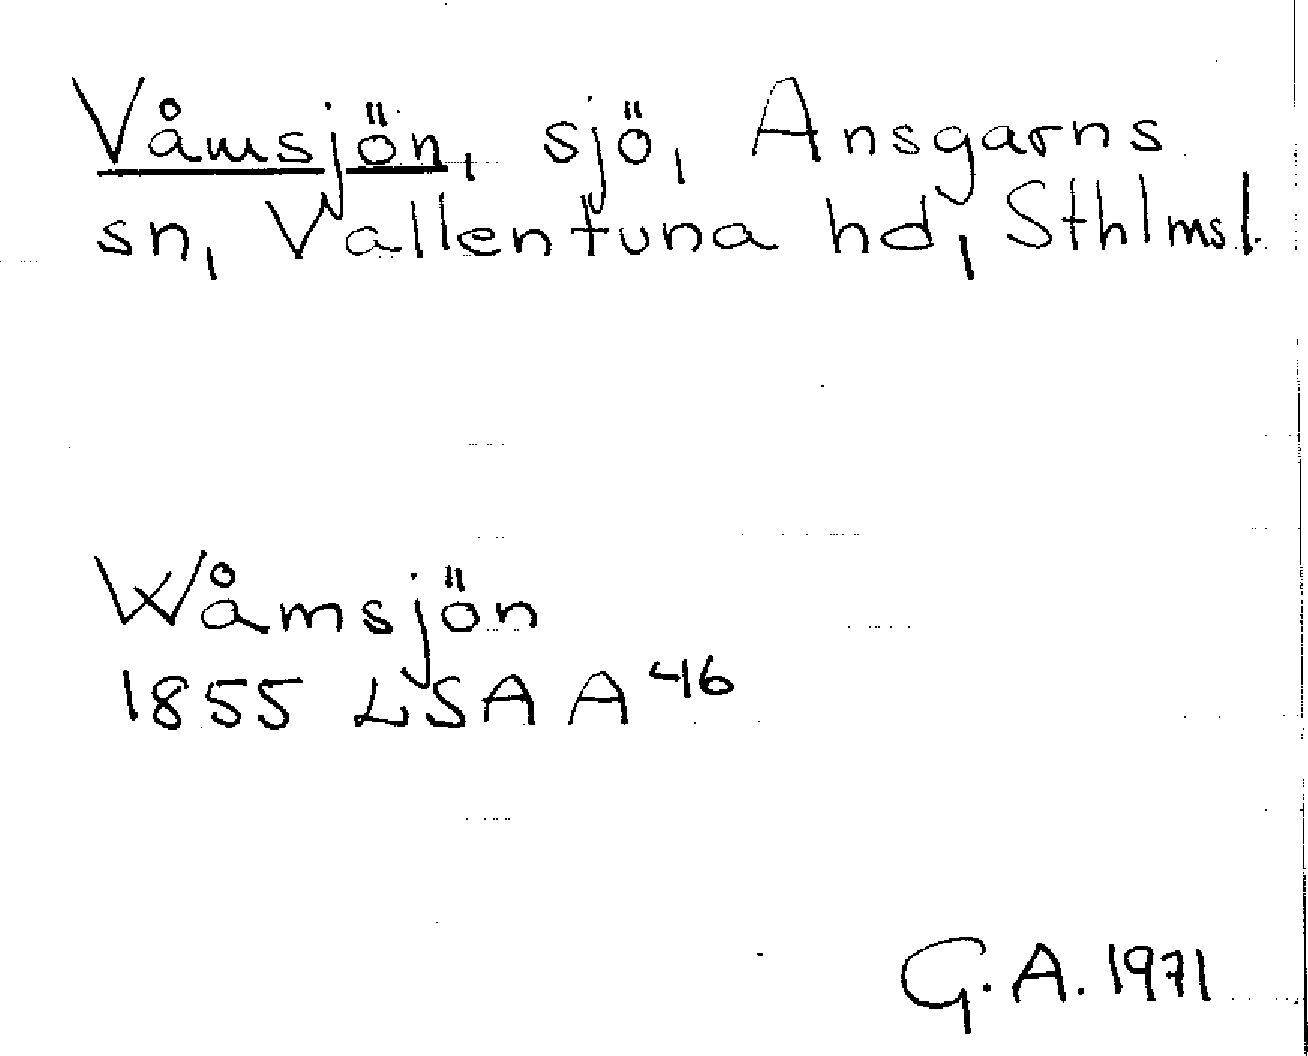 Våmsjön, sjö, Ansgarns
sn, Vallentuna hd, Sthlmsl.
Wåmsjön
1855 LSA A 46
G.A. 1971